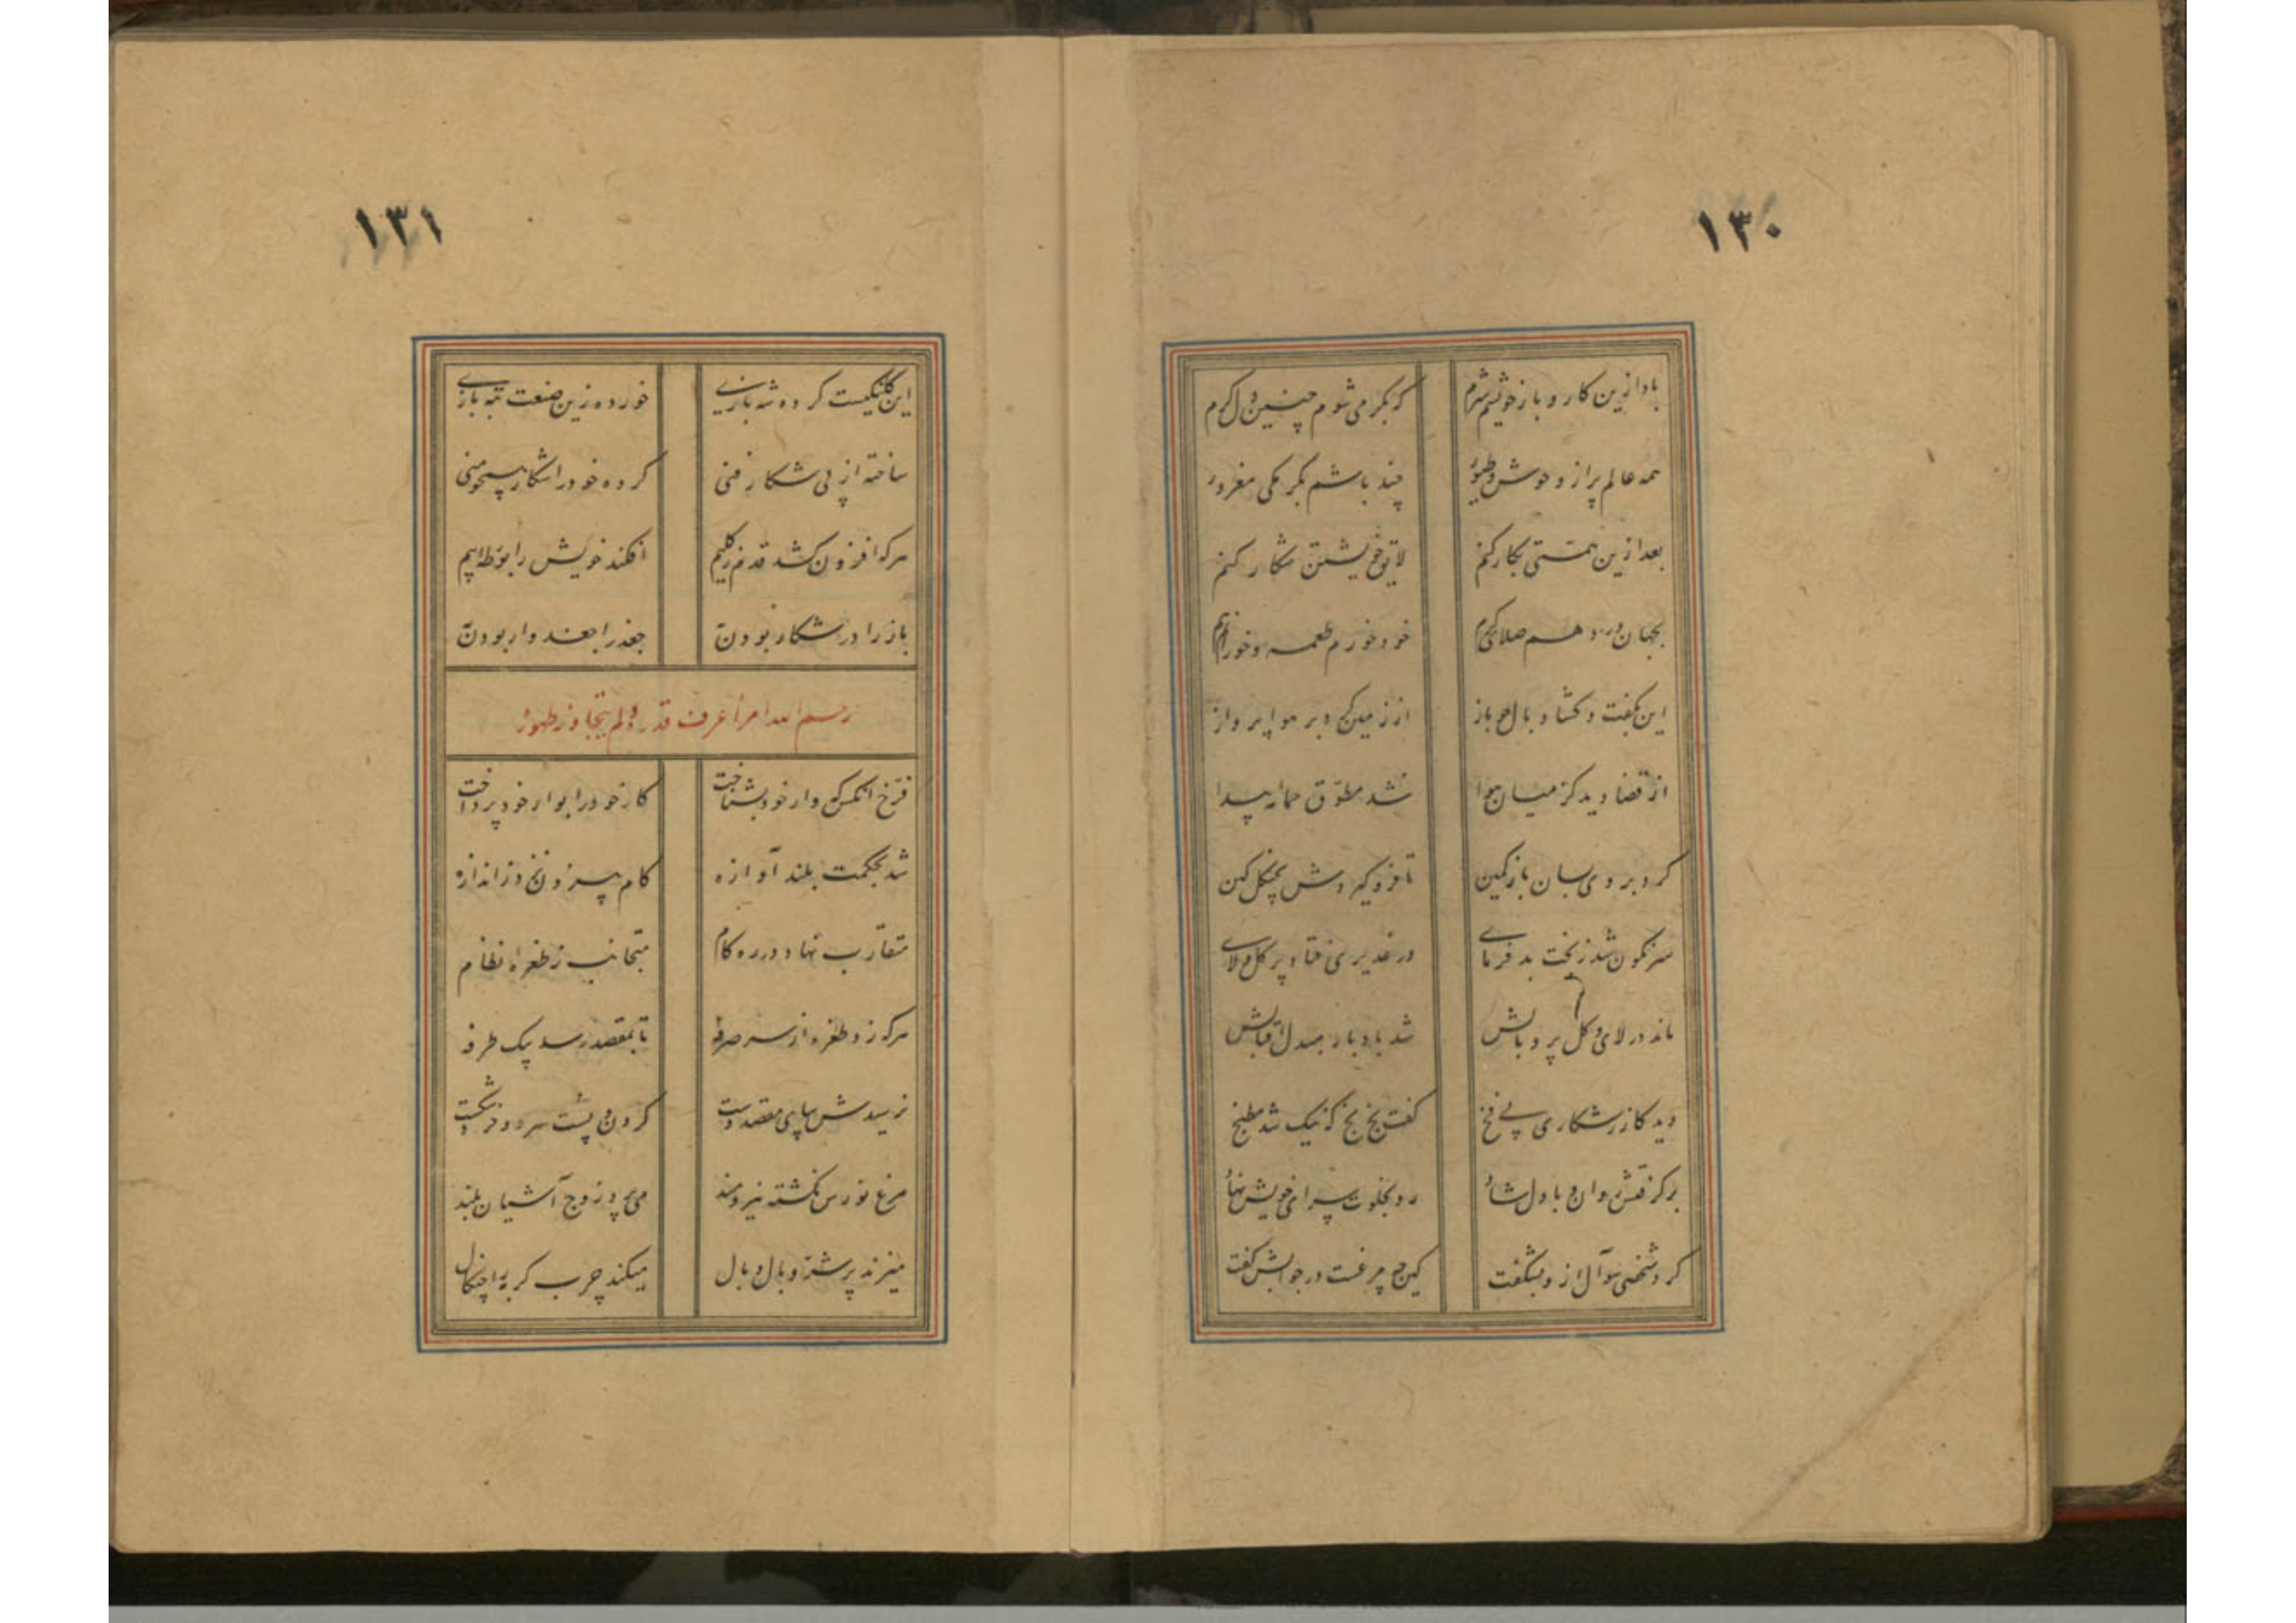 ۱۳۰
بادا ازین کار و بار خویشم شرم که بکرمی شوم چنین دل گرم
همه عالم پر از وحوش و طیور چند باشم بکرمکی مغرور
بعد ازین همتی بکار کنم لایق خویشتن شکار کنم
بجهان در دهم صلای کرم خود خورم طعمه و خورانم هم
این بگفت و گشاد بال چو باز از زمین کرد بر هوا پرواز
از قضا دید کز میان هوا شد مطوق حمامه پیدا
کرد بر وی بسان باز کمین تا فرو گیردش بچنگل کین
سرنگون شد ز بخت بدفرمای در غدیری فتاد پر گل و لای
ماند در لای و گل پر و بالش شد بادبار مبدل اقبالش
دید گازر شکاری بی فخ گفت بخ بخ که نیک شد مطبخ
برگرفتش روان و با دل شاد رو بخلوت سرای خویش نهاد
کرد شخصی سوآل ازو بشگفت کین چه مرغست در جوابش گفت
۱۳۱
این کلنگیست کرده شه بازی خورده زین صنعت تبه بازی
ساخته از پی شکار فنی کرده خود را شکار همچو منی
هرکه افزون کشد قدم ز گلیم افکند خویش را بورطه بیم
باز را در شکار بودن به جغد را جغدوار بودن به
رحم الله امرأ عرف قدره ولم یتجاوز طوره
فرخ آنکس که وار خود بشناخت کار خود را بوار خود پرداخت
شد بحکمت بلند آوازه گام بیرون نزد ز اندازه
متقارب نهاد در ره گام متجانب ز طفره نظام
هرکه زد طفره از سر صرفه تا بمقصد رسد بیک طرفه
نرسیدش بپای مقصد دست گردن و پشت سر دو خرد شکست
مرغ نورس نگشته نیرومند می پرد ز اوج آشیان بلند
میزند پر شتاو بال و بال میکند چرب گربه را چنگال